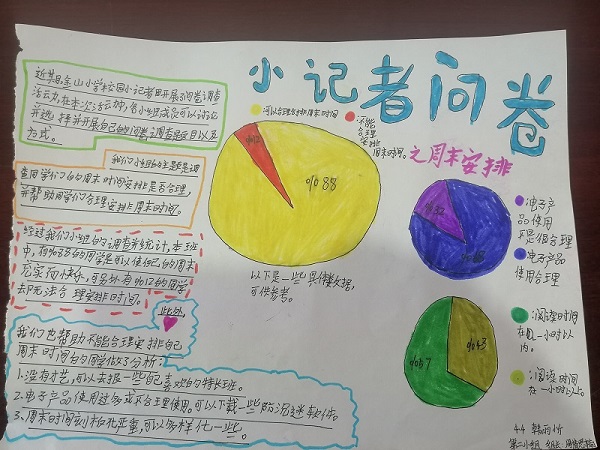 小记者问卷
之周末安排
近期,金山小学校园小记者开展问卷调查
活动。在本次活动中,各小组成员可以讨论
并选择并开展自己的问卷调查题目以及
方式。
我们小组的主题是调
查同学们的周末时间安排是否合理,
并帮助同学们合理安排周末时间。
经过我们小组的调查并统计,本班
中,有%88的同学是可以使自己的周末
充实而快乐,可另外有%12的同学
却无法合理安排时间。
此外
我们也帮助不能合理安排自己
周末时间的同学做了分析:
1.没有才艺,可以去报一些自己喜欢的特长班。
2.电子产品使用过多或不合理使用。可以下载一些防沉迷软件。
3.周末时间刻板化严重,可以多样化一些。
可以合理安排周末时间
不能
合理
安排
周末时间。
%12
%88
以下是一些具体数据,
可供参考。
%12
%88
:电子产
品使用
不是很合理
:电子产品
使用合理
%57
%43
:阅读时间
在一小时以
内。
:阅读时间
在一小时以上。
4.4
第二小组